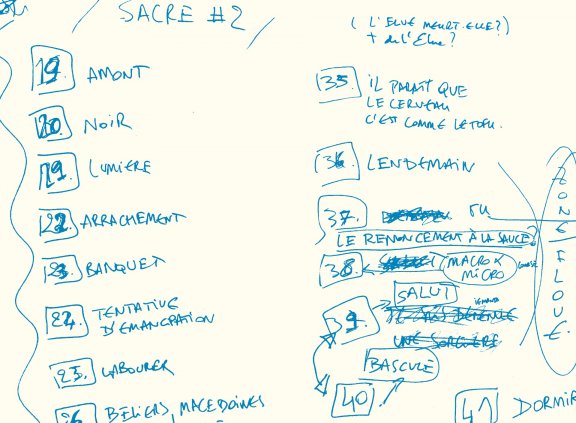 SACRE #2
19. AMONT
20. NOIR
21. LUMIERE
22. ARRACHEMENT
23. BANQUET
24. TENTATIVE
D'EMANCIPATION
25. LABOURER
26. BÉLIERS, MACEDOINES
( L'ELUE MEURT-ELLE?)
+ de l'Elue?
35. IL PARAIT QUE
LE CERVEAU
C'EST COMME LE TOFU.
36. LENDEMAIN
37.
LE RENONCEMENT À LA SAUCE?
38. MACRO &
MICRO
SALUT
39.
UNE SORCIERE
BASCULE
40
41 DORMIR
ZONE FLOUE